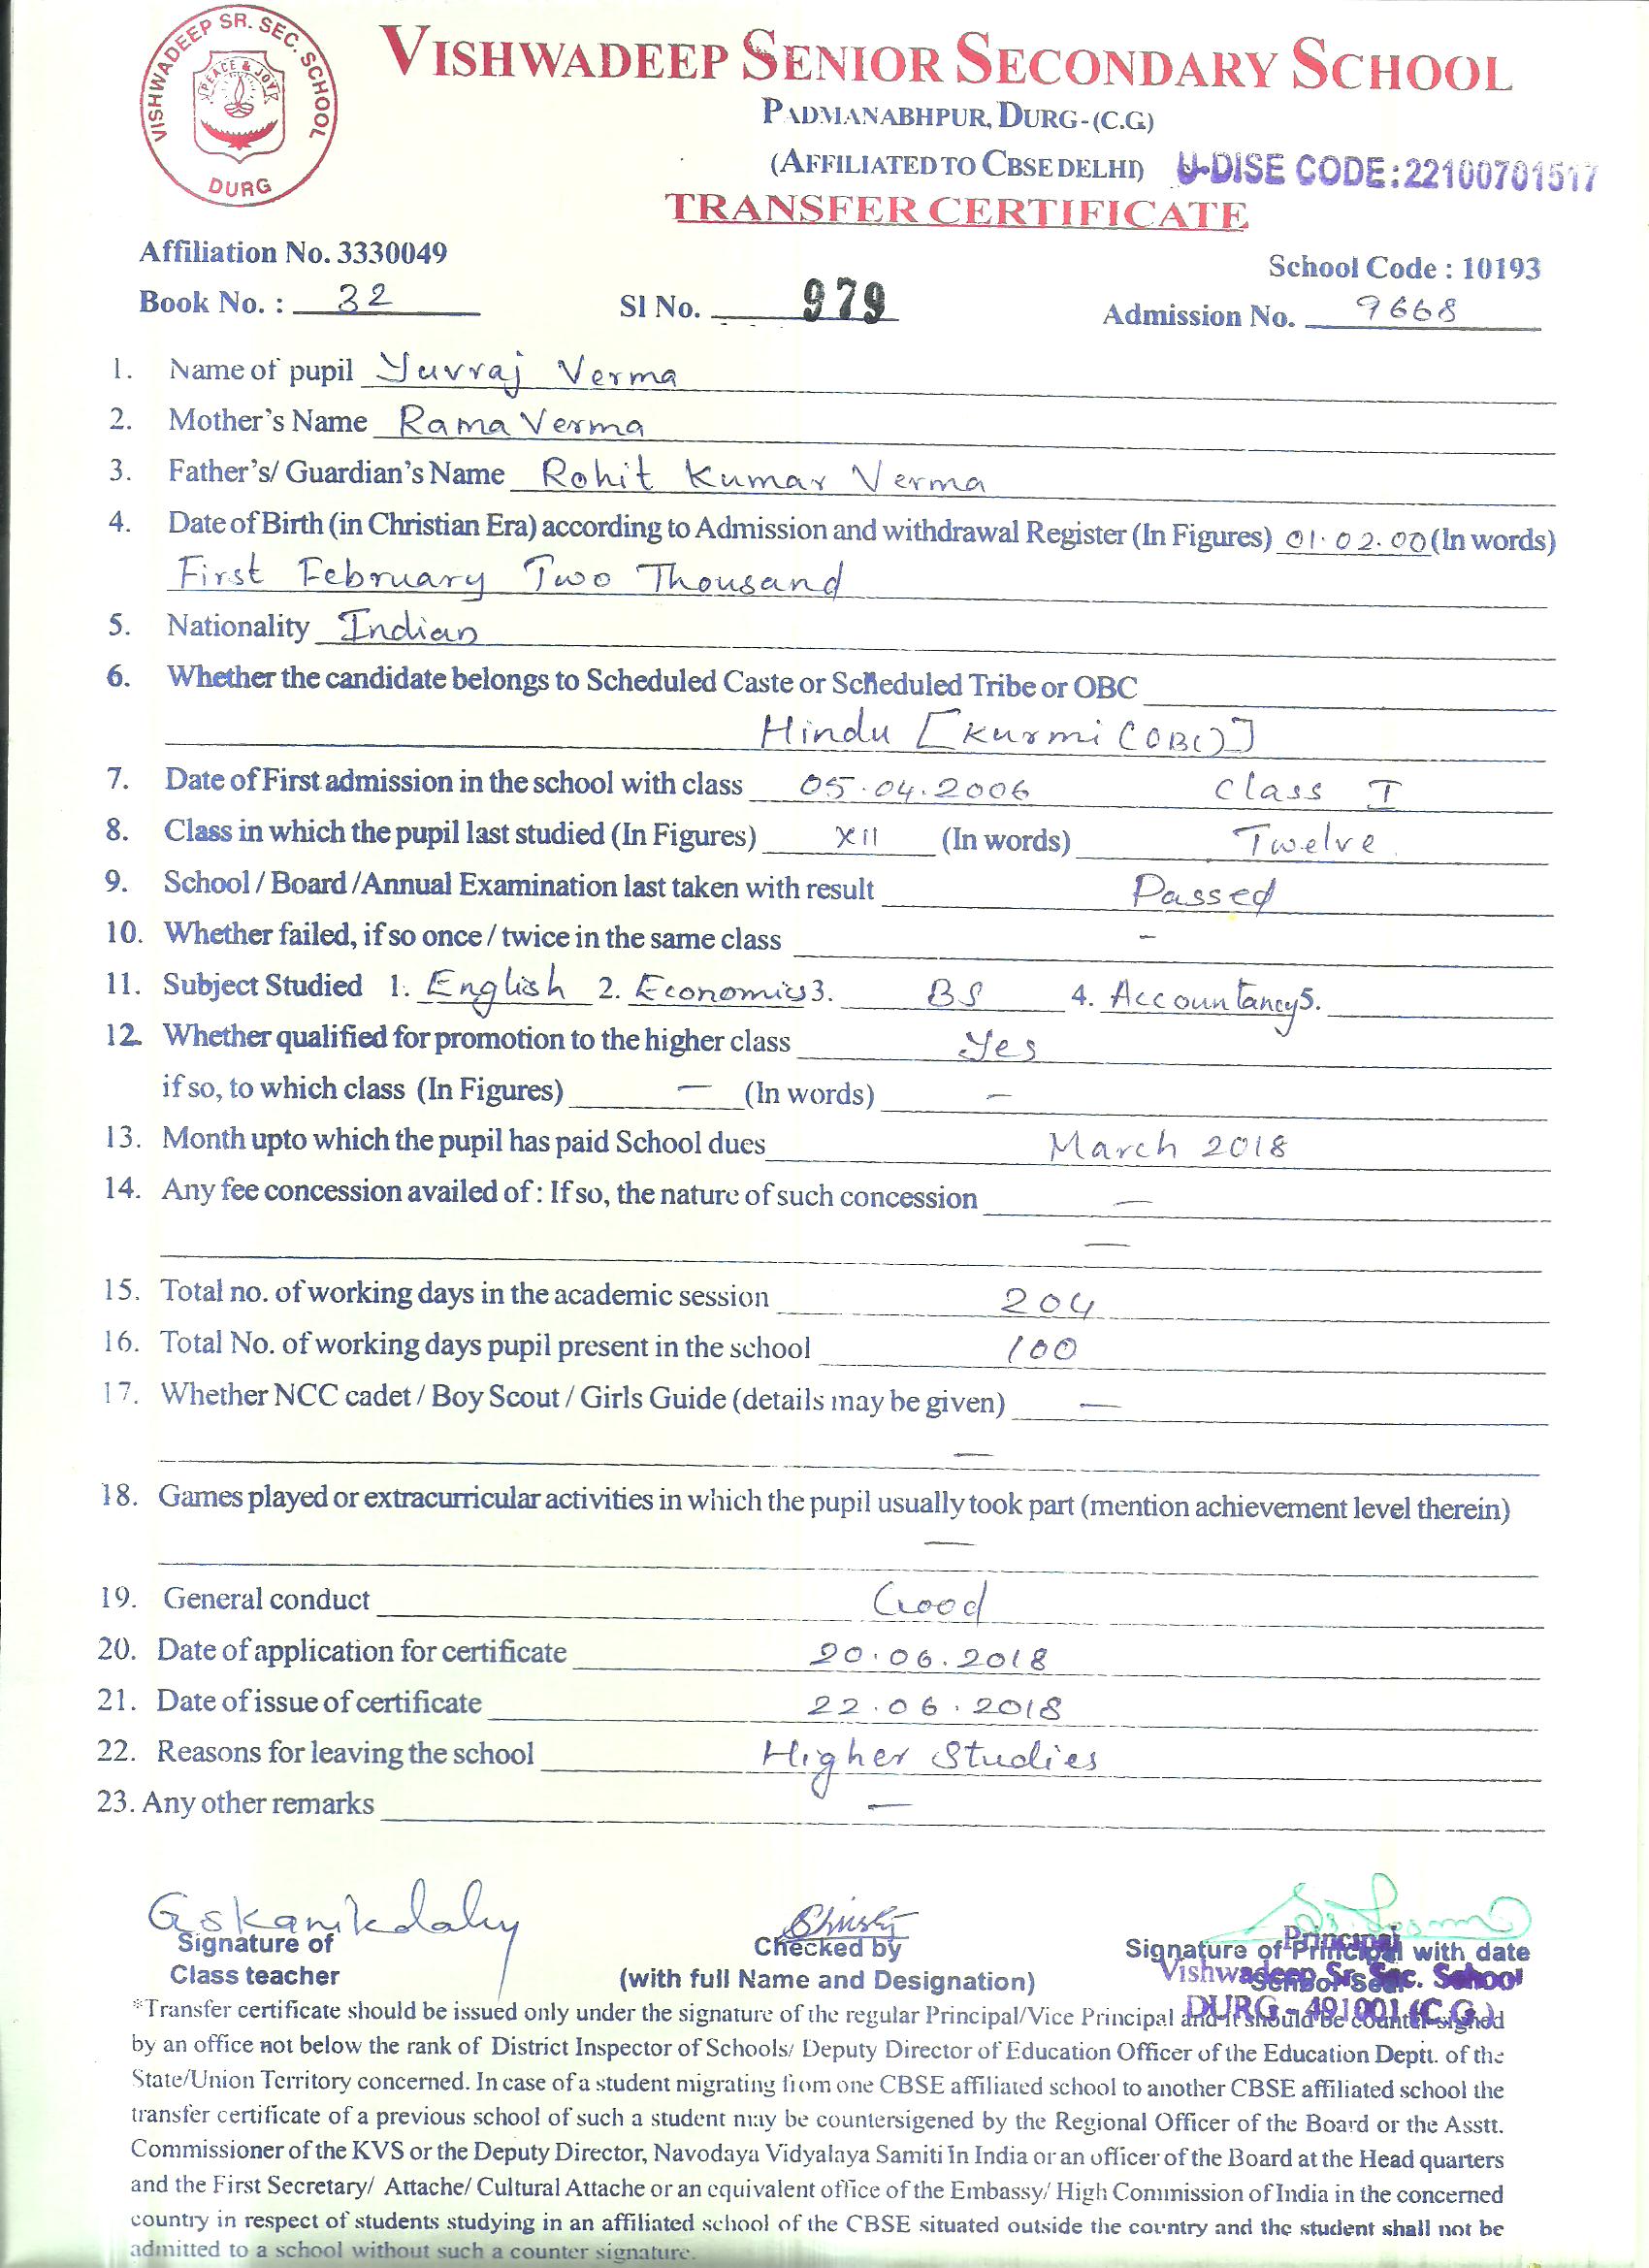 VISHWADEEP SR. SEC. SCHOOL
PEACE & JOY
DURG
VISHWADEEP SENIOR SECONDARY SCHOOL
PADMANABHPUR, DURG-(C.G)
(AFFILIATED TO CBSE DELHI) U-DISE CODE:22100701517
TRANSFER CERTIFICATE
Affiliation No. 3330049 School Code : 10193
Book No. : 32 Sl No. 979 Admission No. 9668
1. Name of pupil Yuvraj Verma
2. Mother's Name Rama Verma
3. Father's/ Guardian's Name Rohit Kumar Verma
4. Date of Birth (in Christian Era) according to Admission and withdrawal Register (In Figures) 01.02.00 (In words)
First February Two Thousand
5. Nationality Indian
6. Whether the candidate belongs to Scheduled Caste or Scheduled Tribe or OBC
Hindu [Kurmi (OBC)]
7. Date of First admission in the school with class 05.04.2006 Class I
8. Class in which the pupil last studied (In Figures) XII (In words) Twelve
9. School / Board /Annual Examination last taken with result Passed
10. Whether failed, if so once / twice in the same class -
11. Subject Studied 1. English 2. Economics 3. BS 4. Accountancy 5.
12. Whether qualified for promotion to the higher class Yes
if so, to which class (In Figures) — (In words) —
13. Month upto which the pupil has paid School dues March 2018
14. Any fee concession availed of : If so, the nature of such concession —
—
15. Total no. of working days in the academic session 204
16. Total No. of working days pupil present in the school 100
17. Whether NCC cadet / Boy Scout / Girls Guide (details may be given) —
—
18. Games played or extracurricular activities in which the pupil usually took part (mention achievement level therein)
—
19. General conduct Good
20. Date of application for certificate 20.06.2018
21. Date of issue of certificate 22.06.2018
22. Reasons for leaving the school Higher Studies
23. Any other remarks —
Signature of Checked by Signature of Principal with date
Principal
Class teacher (with full Name and Designation) School Seal
Vishwadeep Sr. Sec. School
DURG - 491001 (C.G.)
*Transfer certificate should be issued only under the signature of the regular Principal/Vice Principal and it should be counter signed
by an office not below the rank of District Inspector of Schools/ Deputy Director of Education Officer of the Education Deptt. of the
State/Union Territory concerned. In case of a student migrating from one CBSE affiliated school to another CBSE affiliated school the
transfer certificate of a previous school of such a student may be countersigned by the Regional Officer of the Board or the Asstt.
Commissioner of the KVS or the Deputy Director, Navodaya Vidyalaya Samiti In India or an officer of the Board at the Head quarters
and the First Secretary/ Attache/ Cultural Attache or an equivalent office of the Embassy/ High Commission of India in the concerned
country in respect of students studying in an affiliated school of the CBSE situated outside the country and the student shall not be
admitted to a school without such a counter signature.